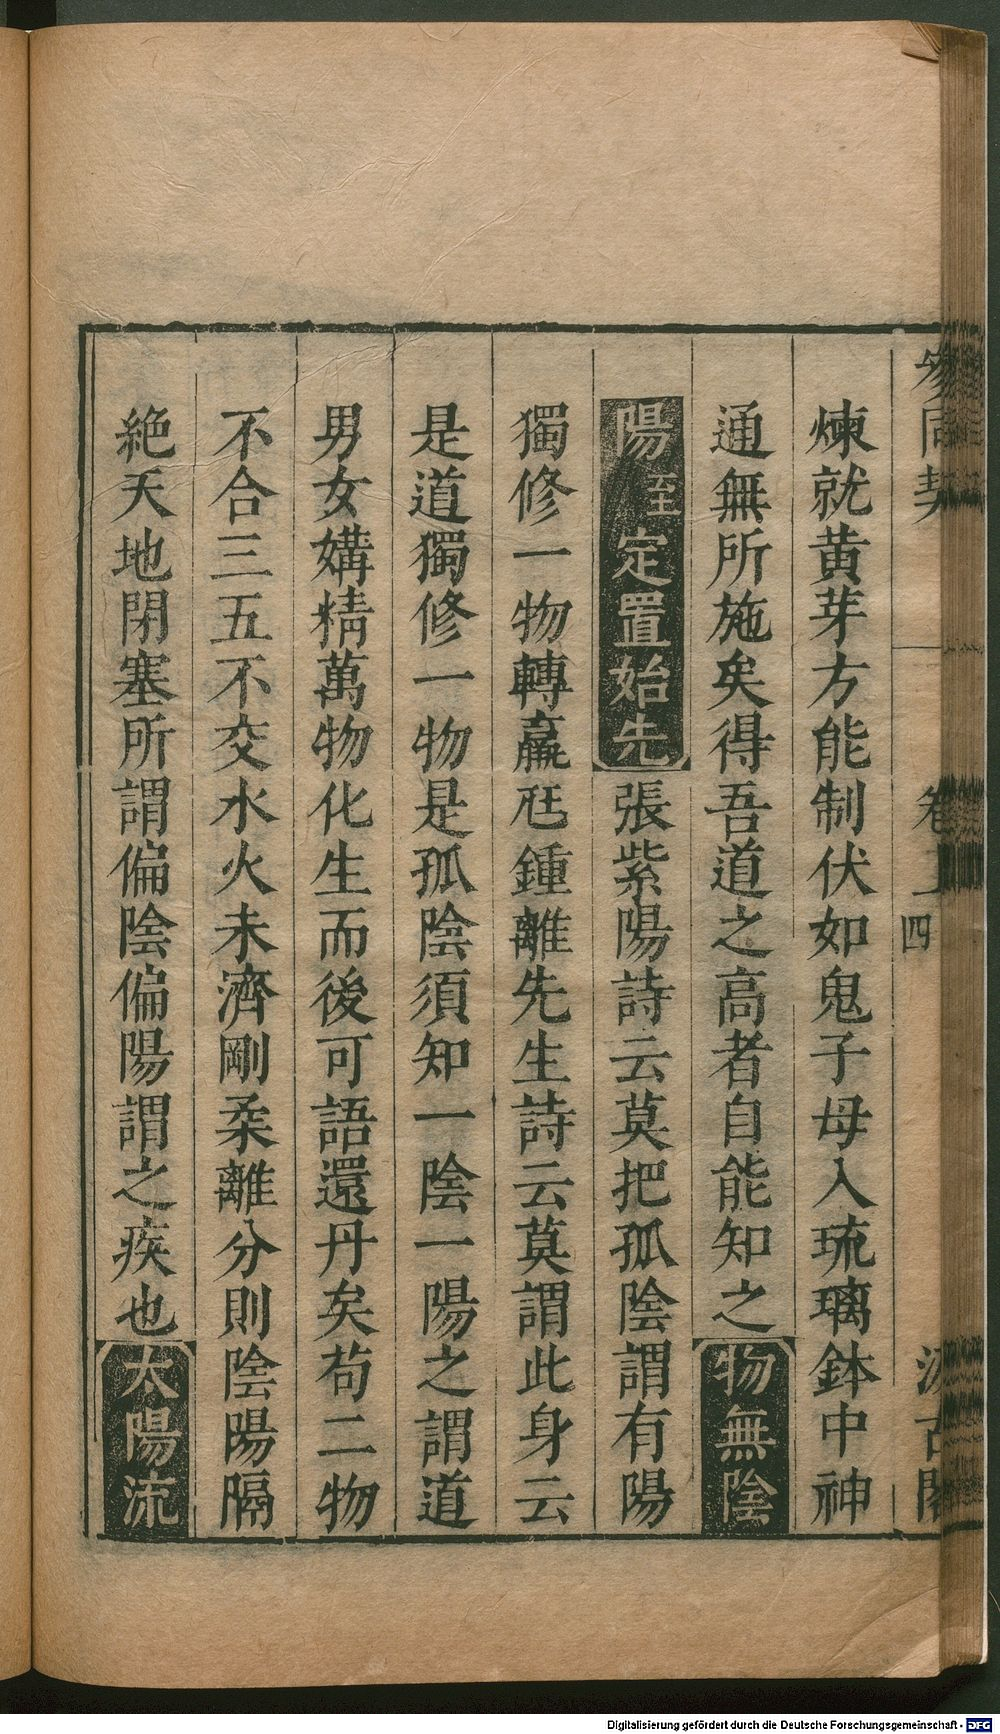 煉就黃芽方能制伏如鬼子母入琉璃鉢中神
通無所施矣得吾道之高者自能知之物無陰
陽至定置始先張紫陽詩云莫把孤陰謂有陽
獨修一物轉羸尫鍾離先生詩云莫謂此身云
是道獨修一物是孤陰須知一陰一陽之謂道
男女媾精萬物化生而後可語還丹矣苟二物
不合三五不交水火未濟剛柔離分則陰陽隔
絶天地閉塞所謂偏陰偏陽謂之疾也太陽流
參同契
卷
四
汲古閣
Digitalisierung gefördert durch die Deutsche Forschungsgemeinschaft - DFG